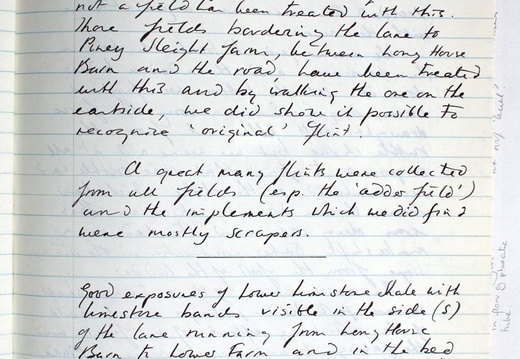 not a field has been treated with this.
Those fields bordering the lane to
Piney Sleight farm, between Long House
Barn and the road, have been treated
with this and by walking the one on the
eastside, we did show it possible to
recognise 'original' flint.
A great many flints were collected
from all fields (esp. the 'adder field')
and the implements which we did find
were mostly scrapers.
Good exposures of Lower Limestone Shale with
limestone bands visible in the side(s)
of the lane running from Long House
Barn to Lower Farm and in the bed